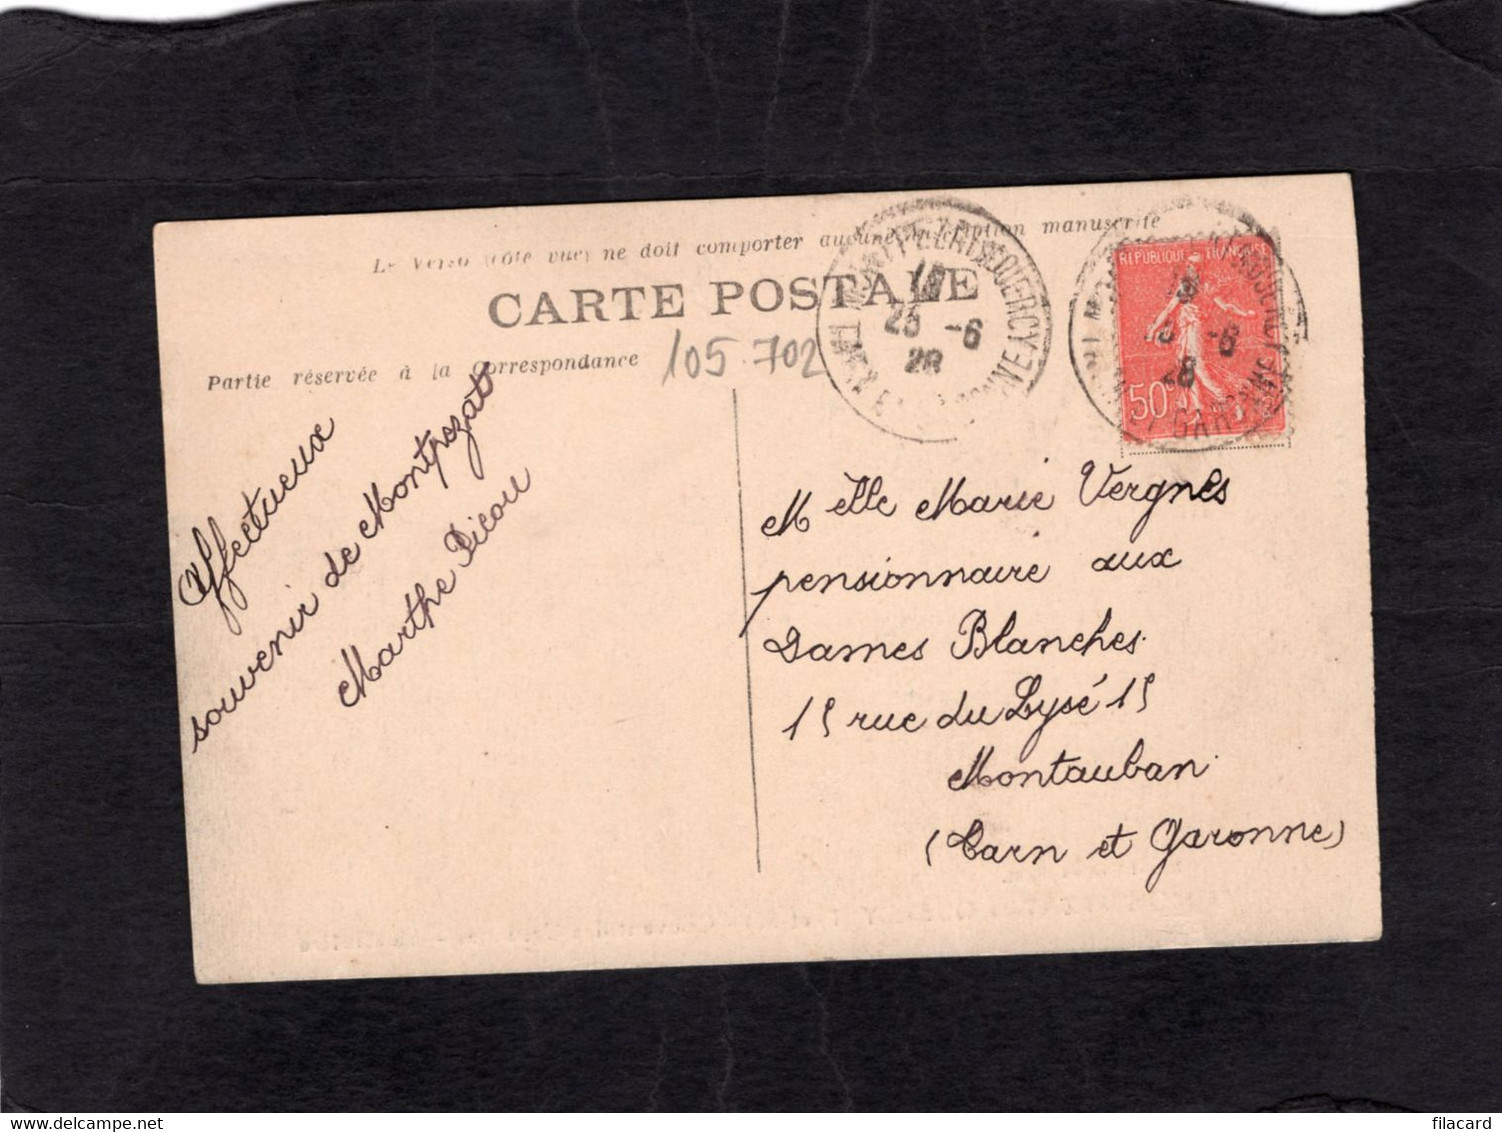 Le Verso (côté vue) ne doit comporter aucune inscription manuscrite
CARTE POSTALE
Partie réservée à la Correspondance
105.702
25 -6
28
REPUBLIQUE FRANÇAISE
50
Affectueux
souvenir de Montpezat
Marthe Picou
Melle Marie Vergnes
pensionnaire aux
Dames Blanches
15 rue du Lysé 15
Montauban
(Tarn et Garonne)
filacard